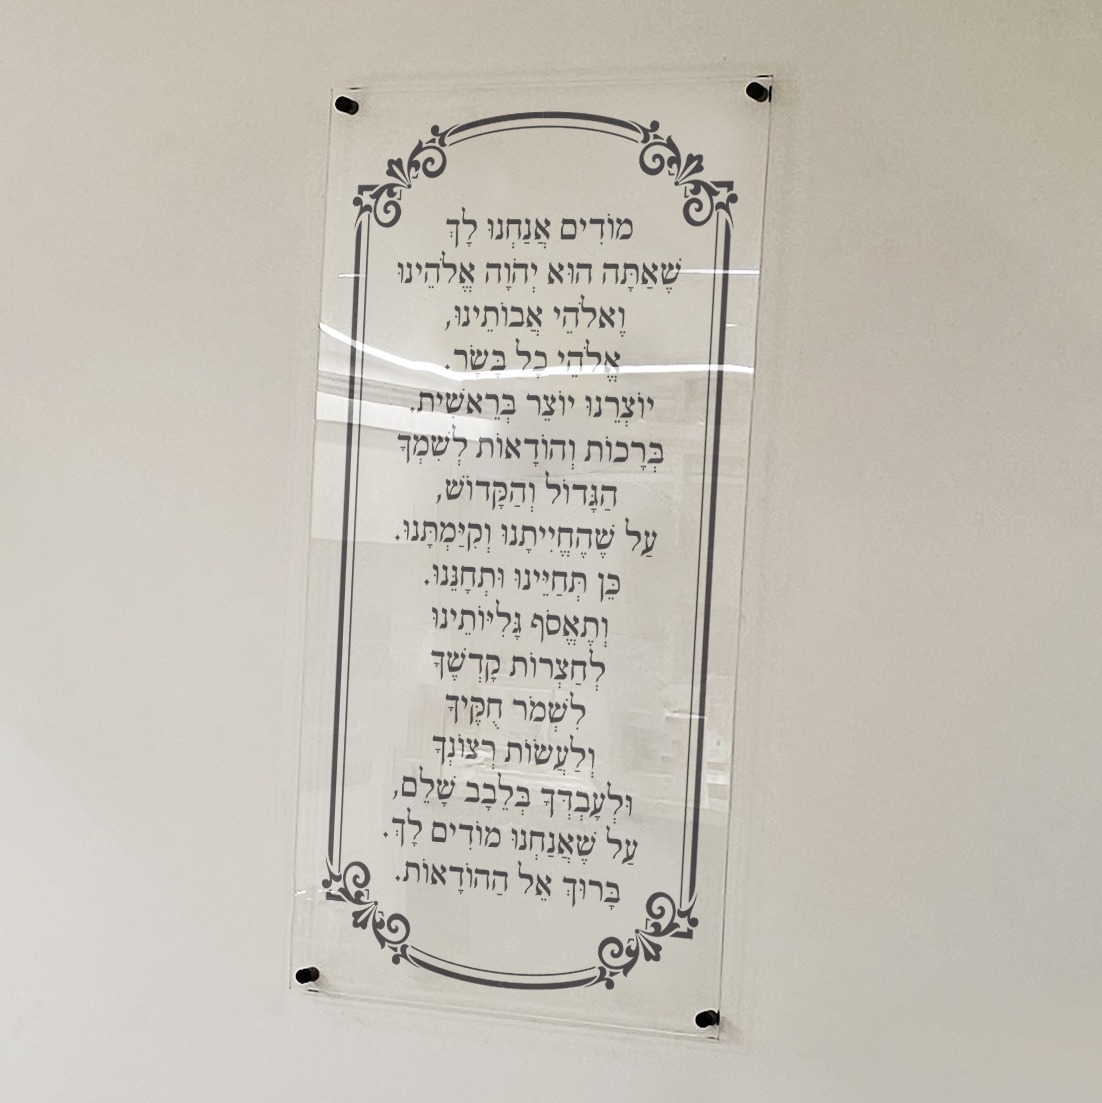 מוֹדִים אֲנַחְנוּ לָךְ
שֶׁאַתָּה הוּא יְהֹוָה אֱלֹהֵינוּ
וֵאלֹהֵי אֲבוֹתֵינוּ,
אֱלֹהֵי כָל בָּשָׂר.
יוֹצְרֵנוּ יוֹצֵר בְּרֵאשִׁית.
בְּרָכוֹת וְהוֹדָאוֹת לְשִׁמְךָ
הַגָּדוֹל וְהַקָּדוֹשׁ,
עַל שֶׁהֶחֱיִיתָנוּ וְקִיַּמְתָּנוּ.
כֵּן תְּחַיֵּינוּ וּתְחָנֵּנוּ.
וְתֶאֱסֹף גָּלִיּוֹתֵינוּ
לְחַצְרוֹת קָדְשֶׁךָ
לִשְׁמֹר חֻקֶּיךָ
וְלַעֲשׂוֹת רְצוֹנְךָ
וּלְעָבְדְּךָ בְּלֵבָב שָׁלֵם,
עַל שֶׁאֲנַחְנוּ מוֹדִים לָךְ.
בָּרוּךְ אֵל הַהוֹדָאוֹת.